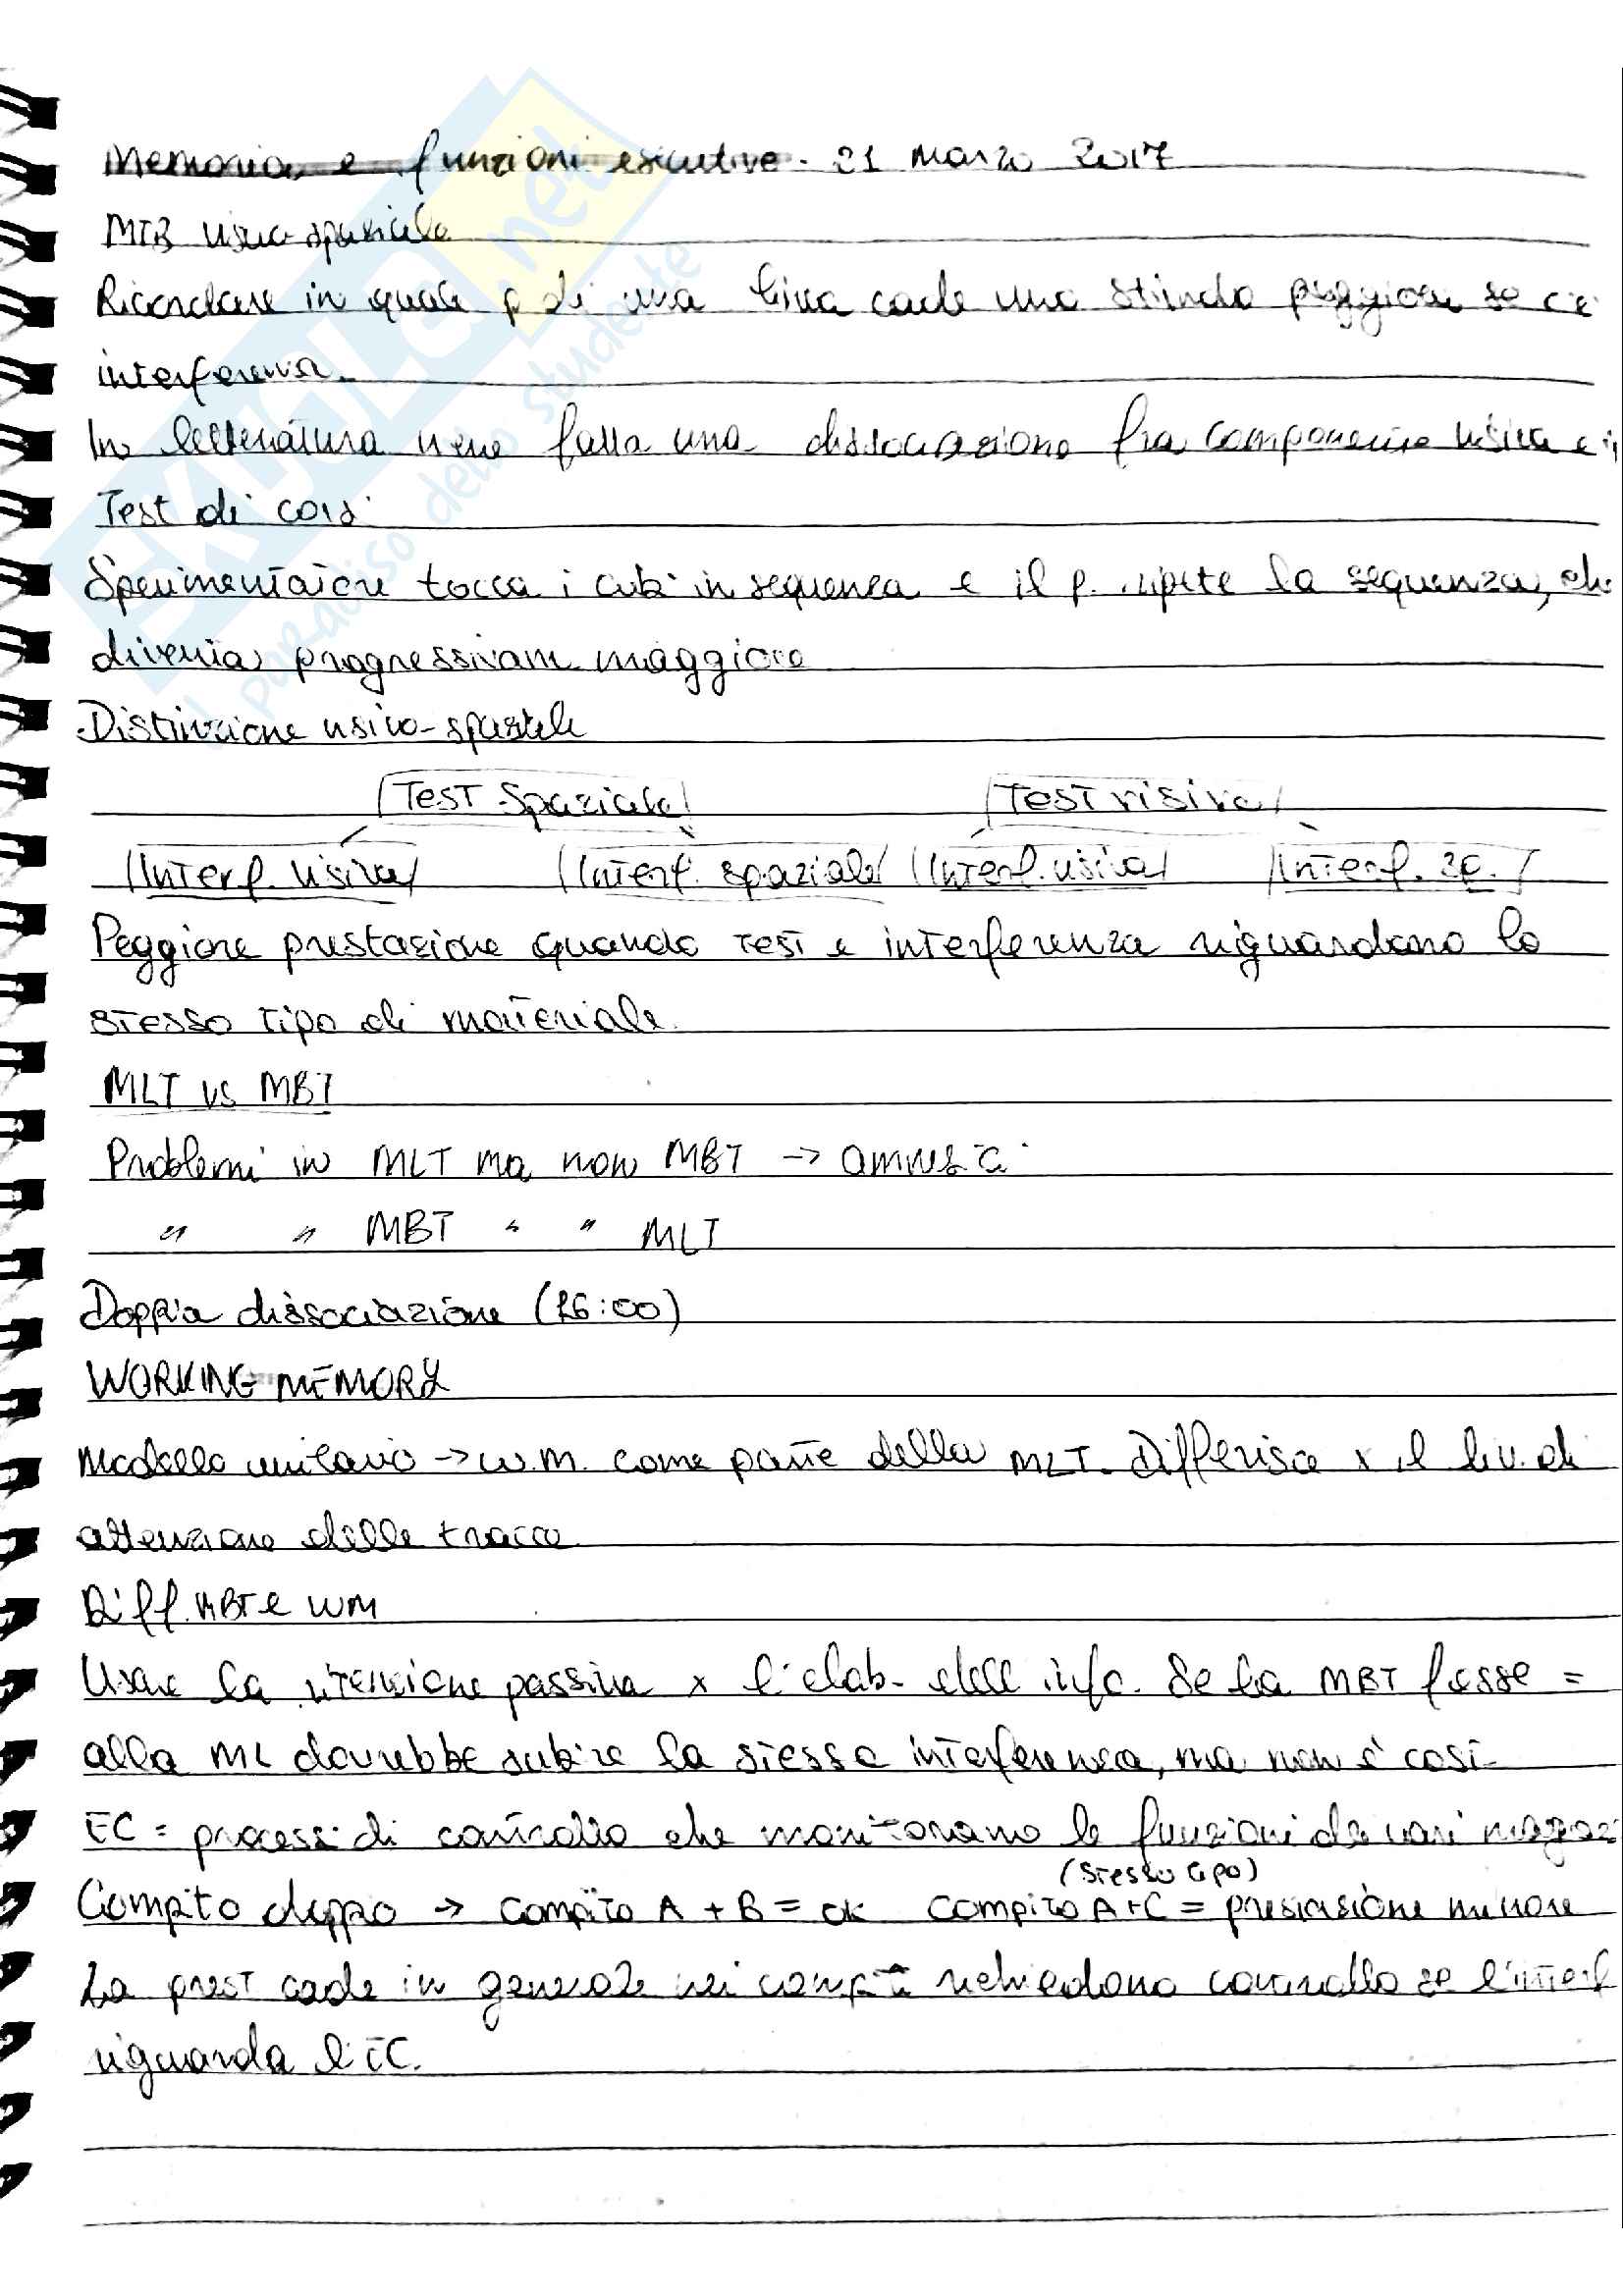 Memoria e funzioni esecutive - 21 marzo 2017
MTB visuo-spaziale
Ricordare in quale p di una linea cade uno stimolo peggiora se c'è
interferenza.
In letteratura viene fatta una dissociazione fra componente visiva e
Test di corsi
Sperimentatore tocca i cubi in sequenza e il p. ripete la sequenza, che
diventa progressivam maggiore
Distinzione visivo-spaziale
Test Spaziale Test visivo
Interf. visiva Interf. spaziale Interf. visiva Interf. sp.
Peggiore prestazione quando test e interferenza riguardano lo
stesso tipo di materiale.
MLT vs MBT
Problemi in MLT ma non MBT → amnesia
" " MBT " " MLT
Doppia dissociazione (26:00)
WORKING MEMORY
Modello unitario → W.M. come parte della MLT. Differisce x il liv. di
attenzione delle tracce
Diff. MBT e WM
Usare la ritenzione passiva x l'elab. dell info. Se la MBT fosse =
alla ML dovrebbe subire la stessa interferenza, ma non è così.
EC = processi di controllo che monitorano le funzioni dei vari magaz
(stesso tipo)
Compito doppio → compito A + B = ok compito A+C = prestazione minore
La prest cade in generale nei compiti richiedono controllo se l'interf
riguarda l'EC.
SKUOLA.net
il paradiso dello studente